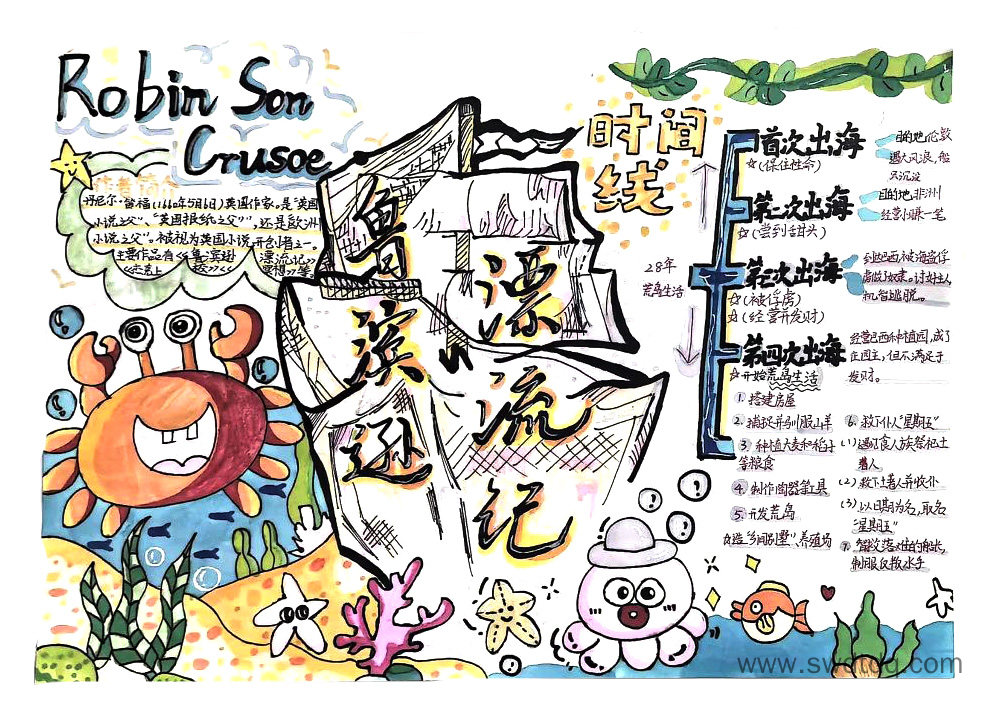 Robin Son
Crusoe
作者简介
丹尼尔·笛福(1660年5月6日)英国作家。是"英国
小说之父"、"英国报纸之父"，还是欧洲
小说之父"。被视为英国小说开创者之一。
主要作品有<<鲁滨逊 漂流记>>
鲁滨逊
漂流记
时间
线
28年
荒岛生活
首次出海
☆(保住性命)
目的地伦敦
遇大风浪，船
只沉没
第二次出海
☆(尝到甜头)
目的地非洲
经营小赚一笔
第三次出海
☆(被俘虏)
☆(经营开发财)
到达巴西,被海盗俘
虏做了奴隶。讨好主人
机智逃脱。
第四次出海
☆开始荒岛生活
经营巴西种植园,成了
庄园主，但不满足于
发财。
1. 搭建房屋
2. 捕捉并驯服山羊
3. 种植大麦和稻子
等粮食
4. 制作陶器等工具
5. 开发荒岛
☆造"乡间别墅"、养殖场
6. 救下仆人"星期五"
(1) 遇见食人族祭祀土
着人
(2) 救下土著人并收仆
(3) 以日期为名，取名
"星期五"
7. 智救落难的船长,
制服反叛水手
www.swdtdq.com